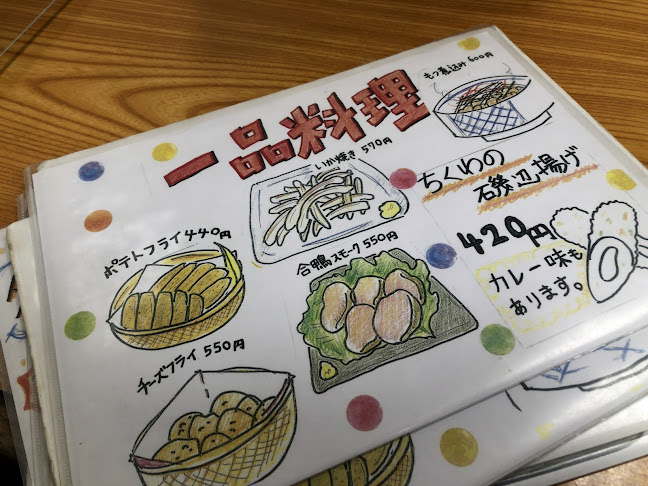 一品料理
もつ煮込み 600円
いか焼き 570円
ちくわの
磯辺揚げ
420円
カレー味も
あります。
ポテトフライ 440円
合鴨スモーク 550円
チーズフライ 550円